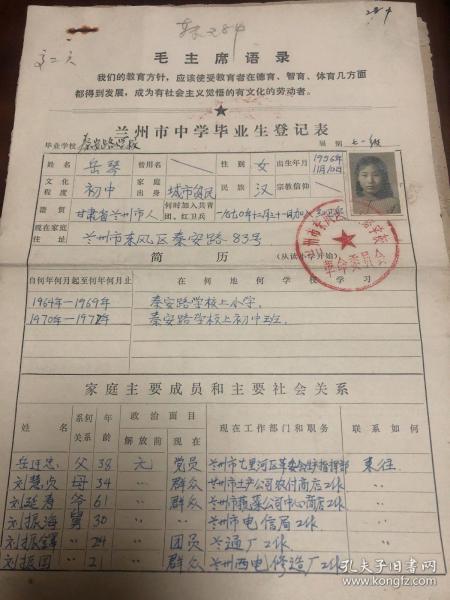 毛主席语录
我们的教育方针，应该使受教育者在德育、智育、体育几方面
都得到发展，成为有社会主义觉悟的有文化的劳动者。
兰州市中学毕业生登记表
毕业学校 秦安路学校 届别 七一级
姓名 岳琴 曾用名 性别 女 出生年月 1956年11月10日
文化程度 初中 家庭出身 城市贫民 民族 汉 宗教信仰
籍贯 甘肃省兰州市人 何时加入共青团、红卫兵 一九七0年十二月三十一日加入
现在家庭住址 兰州市东风区秦安路83号
革命委员会
简历 （从读小学开始）
自何年何月起至何年何月止 在何地何学校学习
1964年—1969年 秦安路学校上小学.
1970年—1972年 秦安路学校上初中班.
家庭主要成员和主要社会关系
姓名 系何关系 年龄 政治面目 现在工作部门和职务 联系如何
解放前 现在
父 38 党员 兰州市七里河区 来往
刘慧 母 34 〃 群众 兰州市土产公司农付商店工作
刘延寿 爷 61 群众 兰州市蔬菜公司中心商店工作
刘振海 舅 30 〃 〃 兰州市电信局工作
刘振 〃 24 团员 兰通厂工作
刘振国 〃 21 群众 兰州西电修造厂工作
孔夫子旧书网